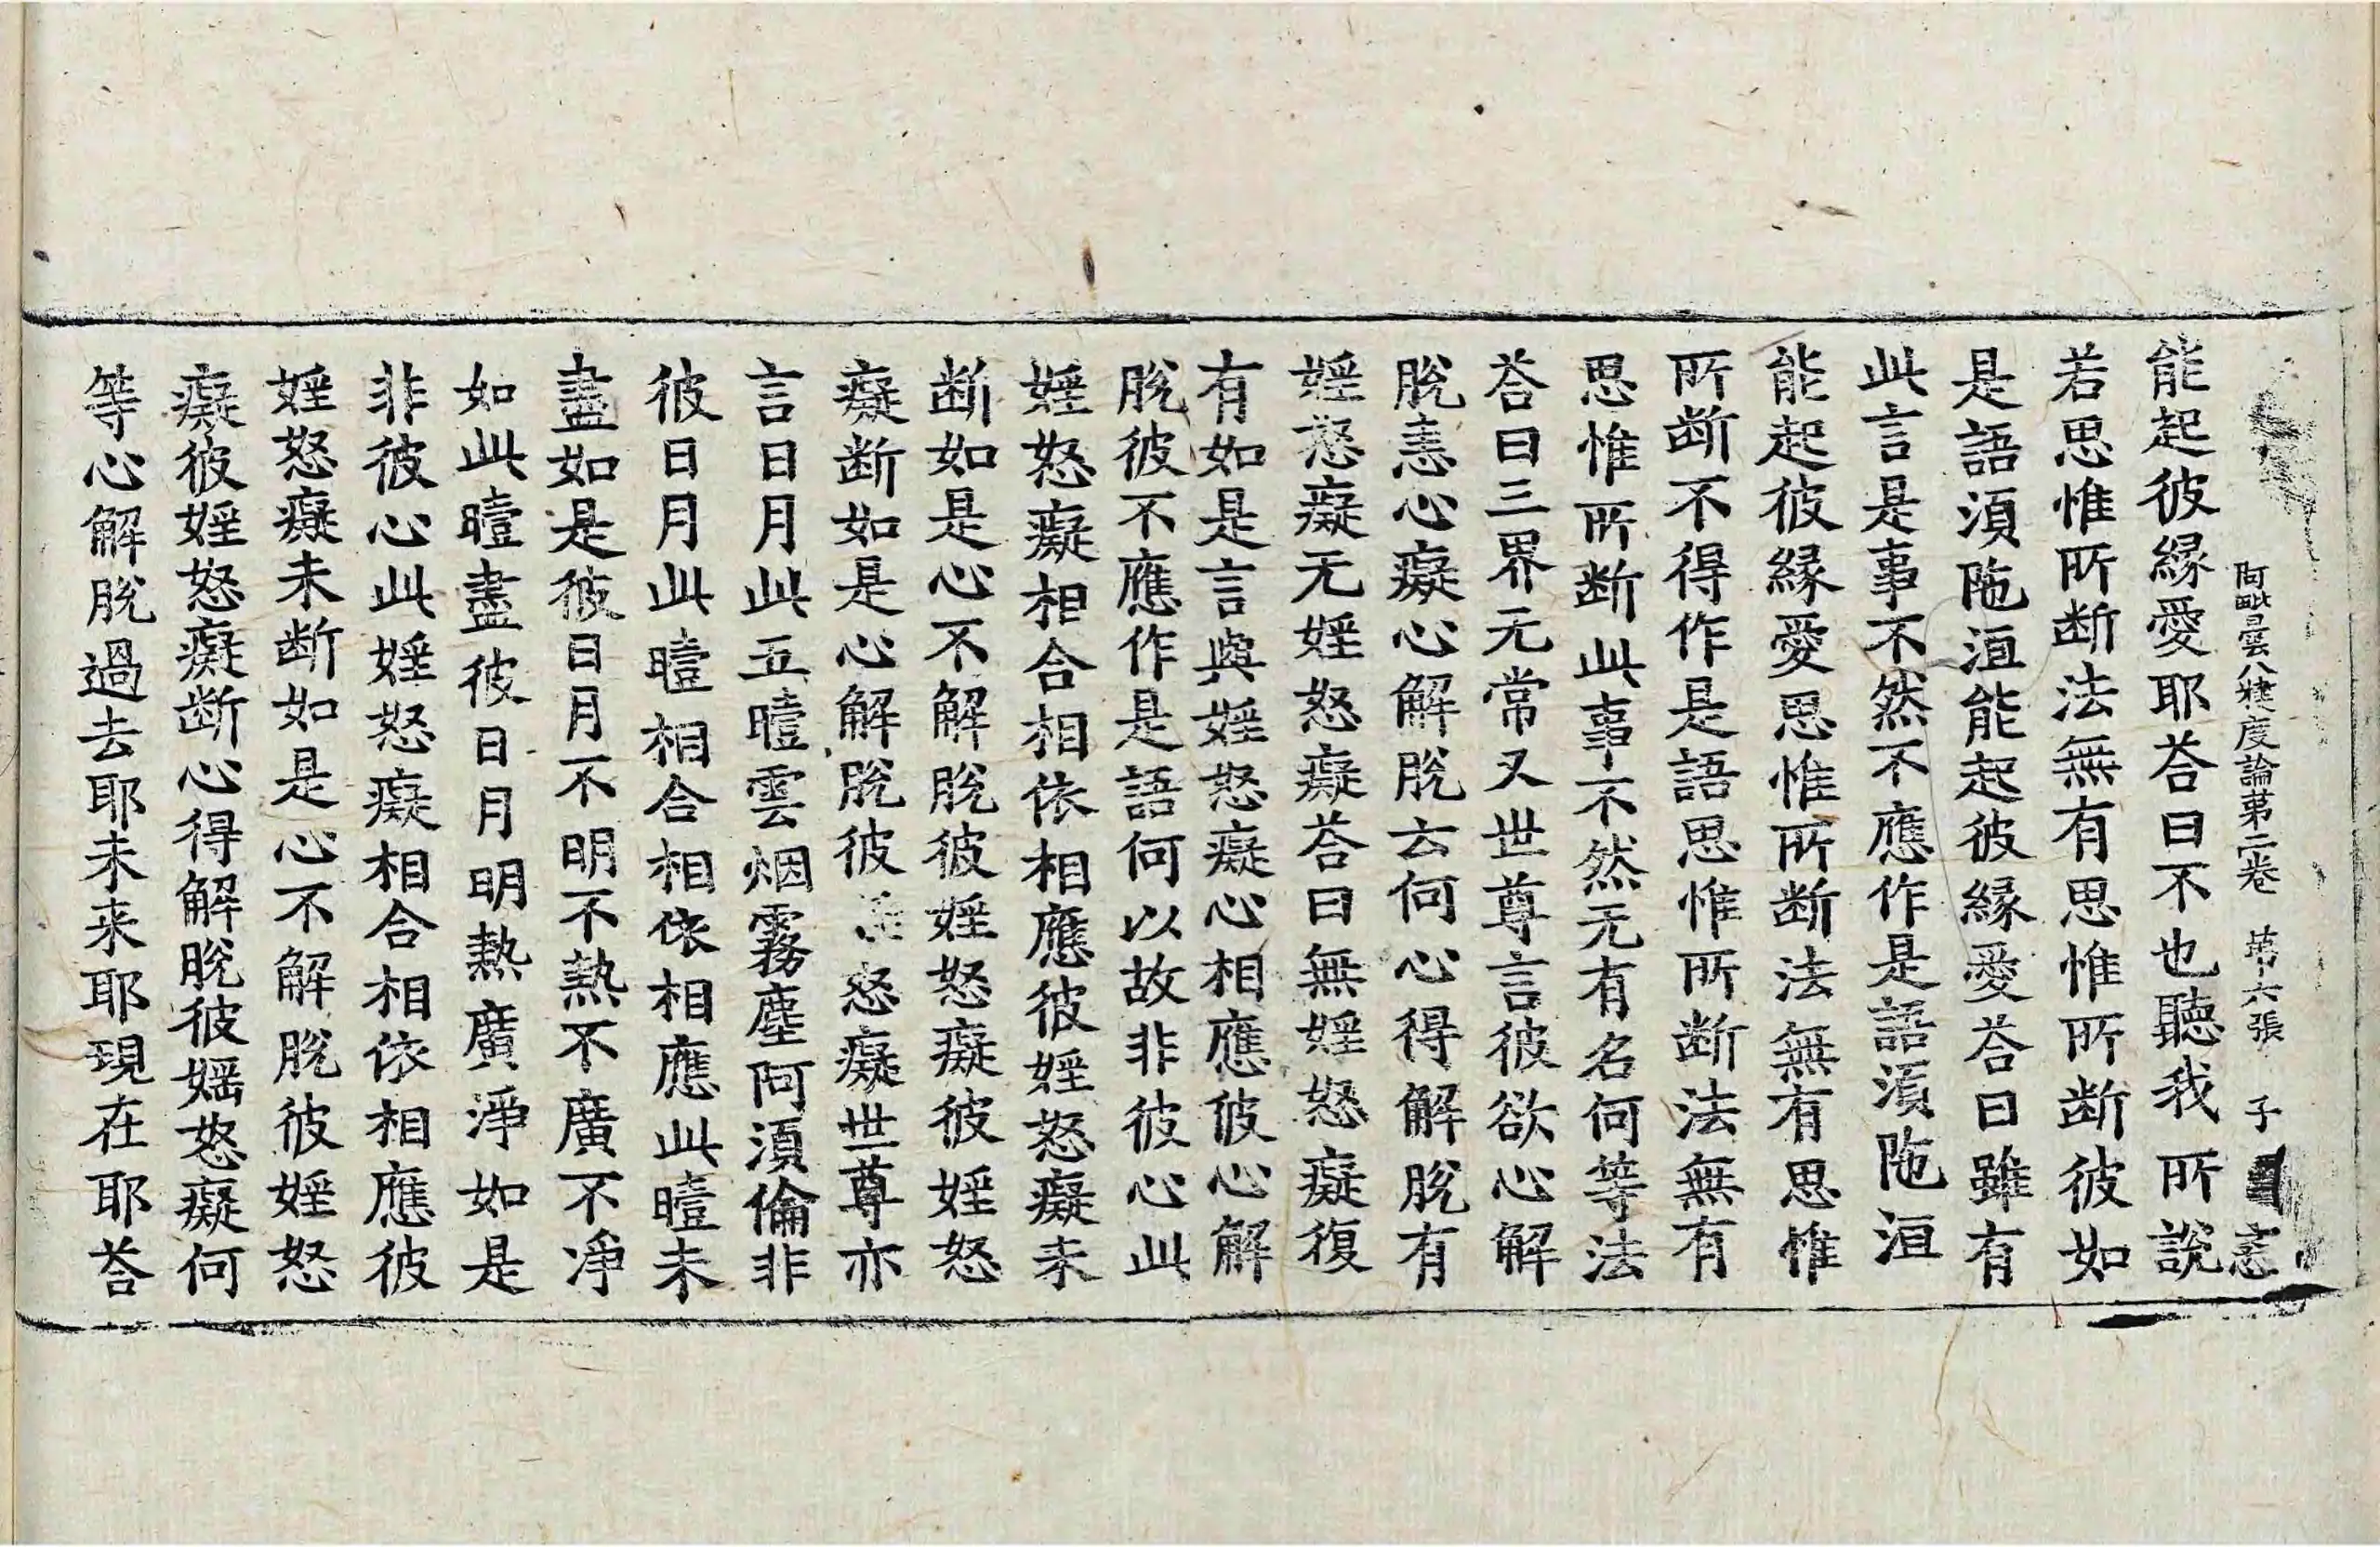 阿毗曇八犍度論第二卷 第十六張 子
能起彼緣愛耶荅曰不也聽我所說
若思惟所断法無有思惟所断彼如
是語湏陁洹能起彼緣愛荅曰雖有
此言是事不然不應作是語湏陁洹
能起彼緣愛思惟所断法無有思惟
所断不得作是語思惟所断法無有
思惟所断此事不然无有名何等法
荅曰三界无常又世尊言彼欲心解
脫恚心癡心解脫云何心得解脫有
婬怒癡无婬怒癡荅曰無婬怒癡復
有如是言與婬怒癡心相應彼心解
脫彼不應作是語何以故非彼心此
婬怒癡相合相依相應彼婬怒癡未
断如是心不解脫彼婬怒癡彼婬怒
癡断如是心解脫彼怒癡世尊亦
言日月此五曀雲烟霧塵阿湏倫非
彼日月此曀相合相依相應此曀未
盡如是彼日月不明不熱不廣不淨
如此曀盡彼日月明熱廣淨如是
非彼心此婬怒癡相合相依相應彼
婬怒癡未断如是心不解脫彼婬怒
癡彼婬怒癡断心得解脫彼婬怒癡何
等心解脫過去耶未来耶現在耶荅